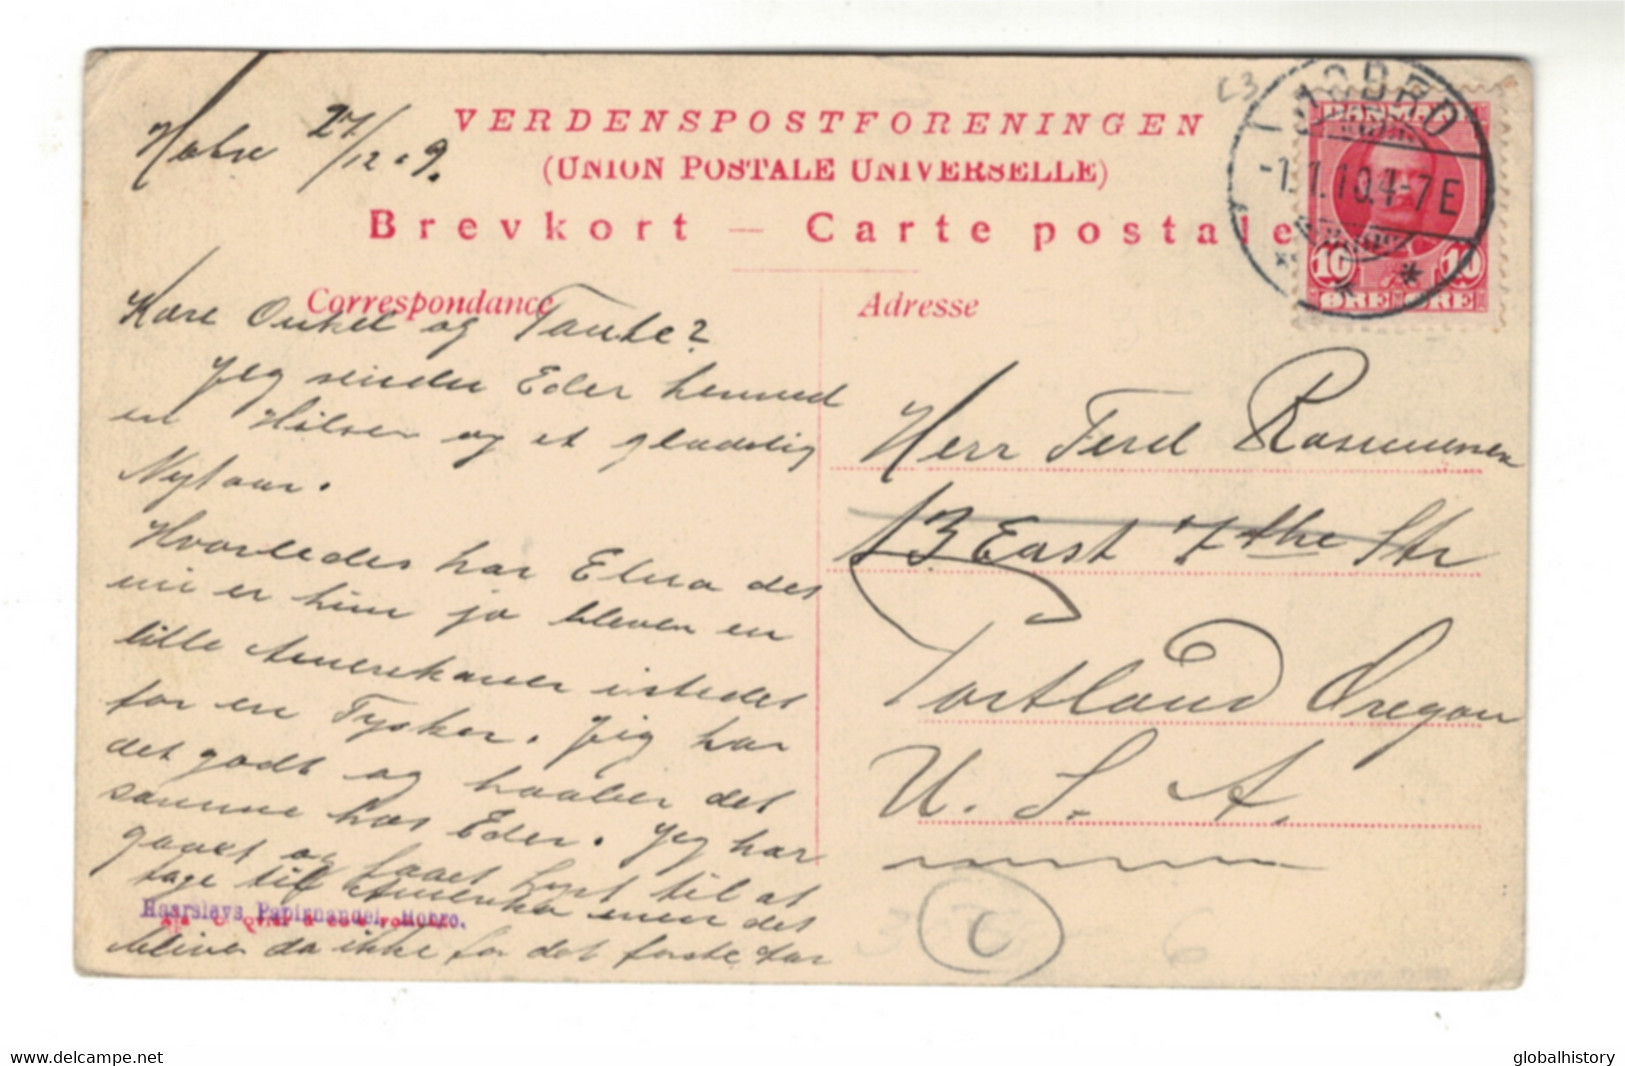 Hobro 27/12 09.
VERDENSPOSTFORENINGEN
(UNION POSTALE UNIVERSELLE)
Brevkort — Carte postale
Correspondance
Adresse
HOBRO
-1.1.10.4-7E
DANMARK
10 10
ØRE ØRE
Kære Onkel og Tante?
Jeg sender Eder hermed
en Hilsen og et glædelig
Nytaar.
Hvorledes har Elna det
nu er hun jo bleven en
lille Amerikaner istedet
for en Tysker. Jeg har
det godt og haaber det
samme hos Eder. Jeg har
gaaet og faaet Lyst til at
tage til Amerika men det
bliver da ikke for det første
Haarslevs Papirhandel, Hobro.
Herr Ferd Rasmussen
13 East 7the Str
Portland Oregon
U. S. A.
C
6
www.delcampe.net
globalhistory